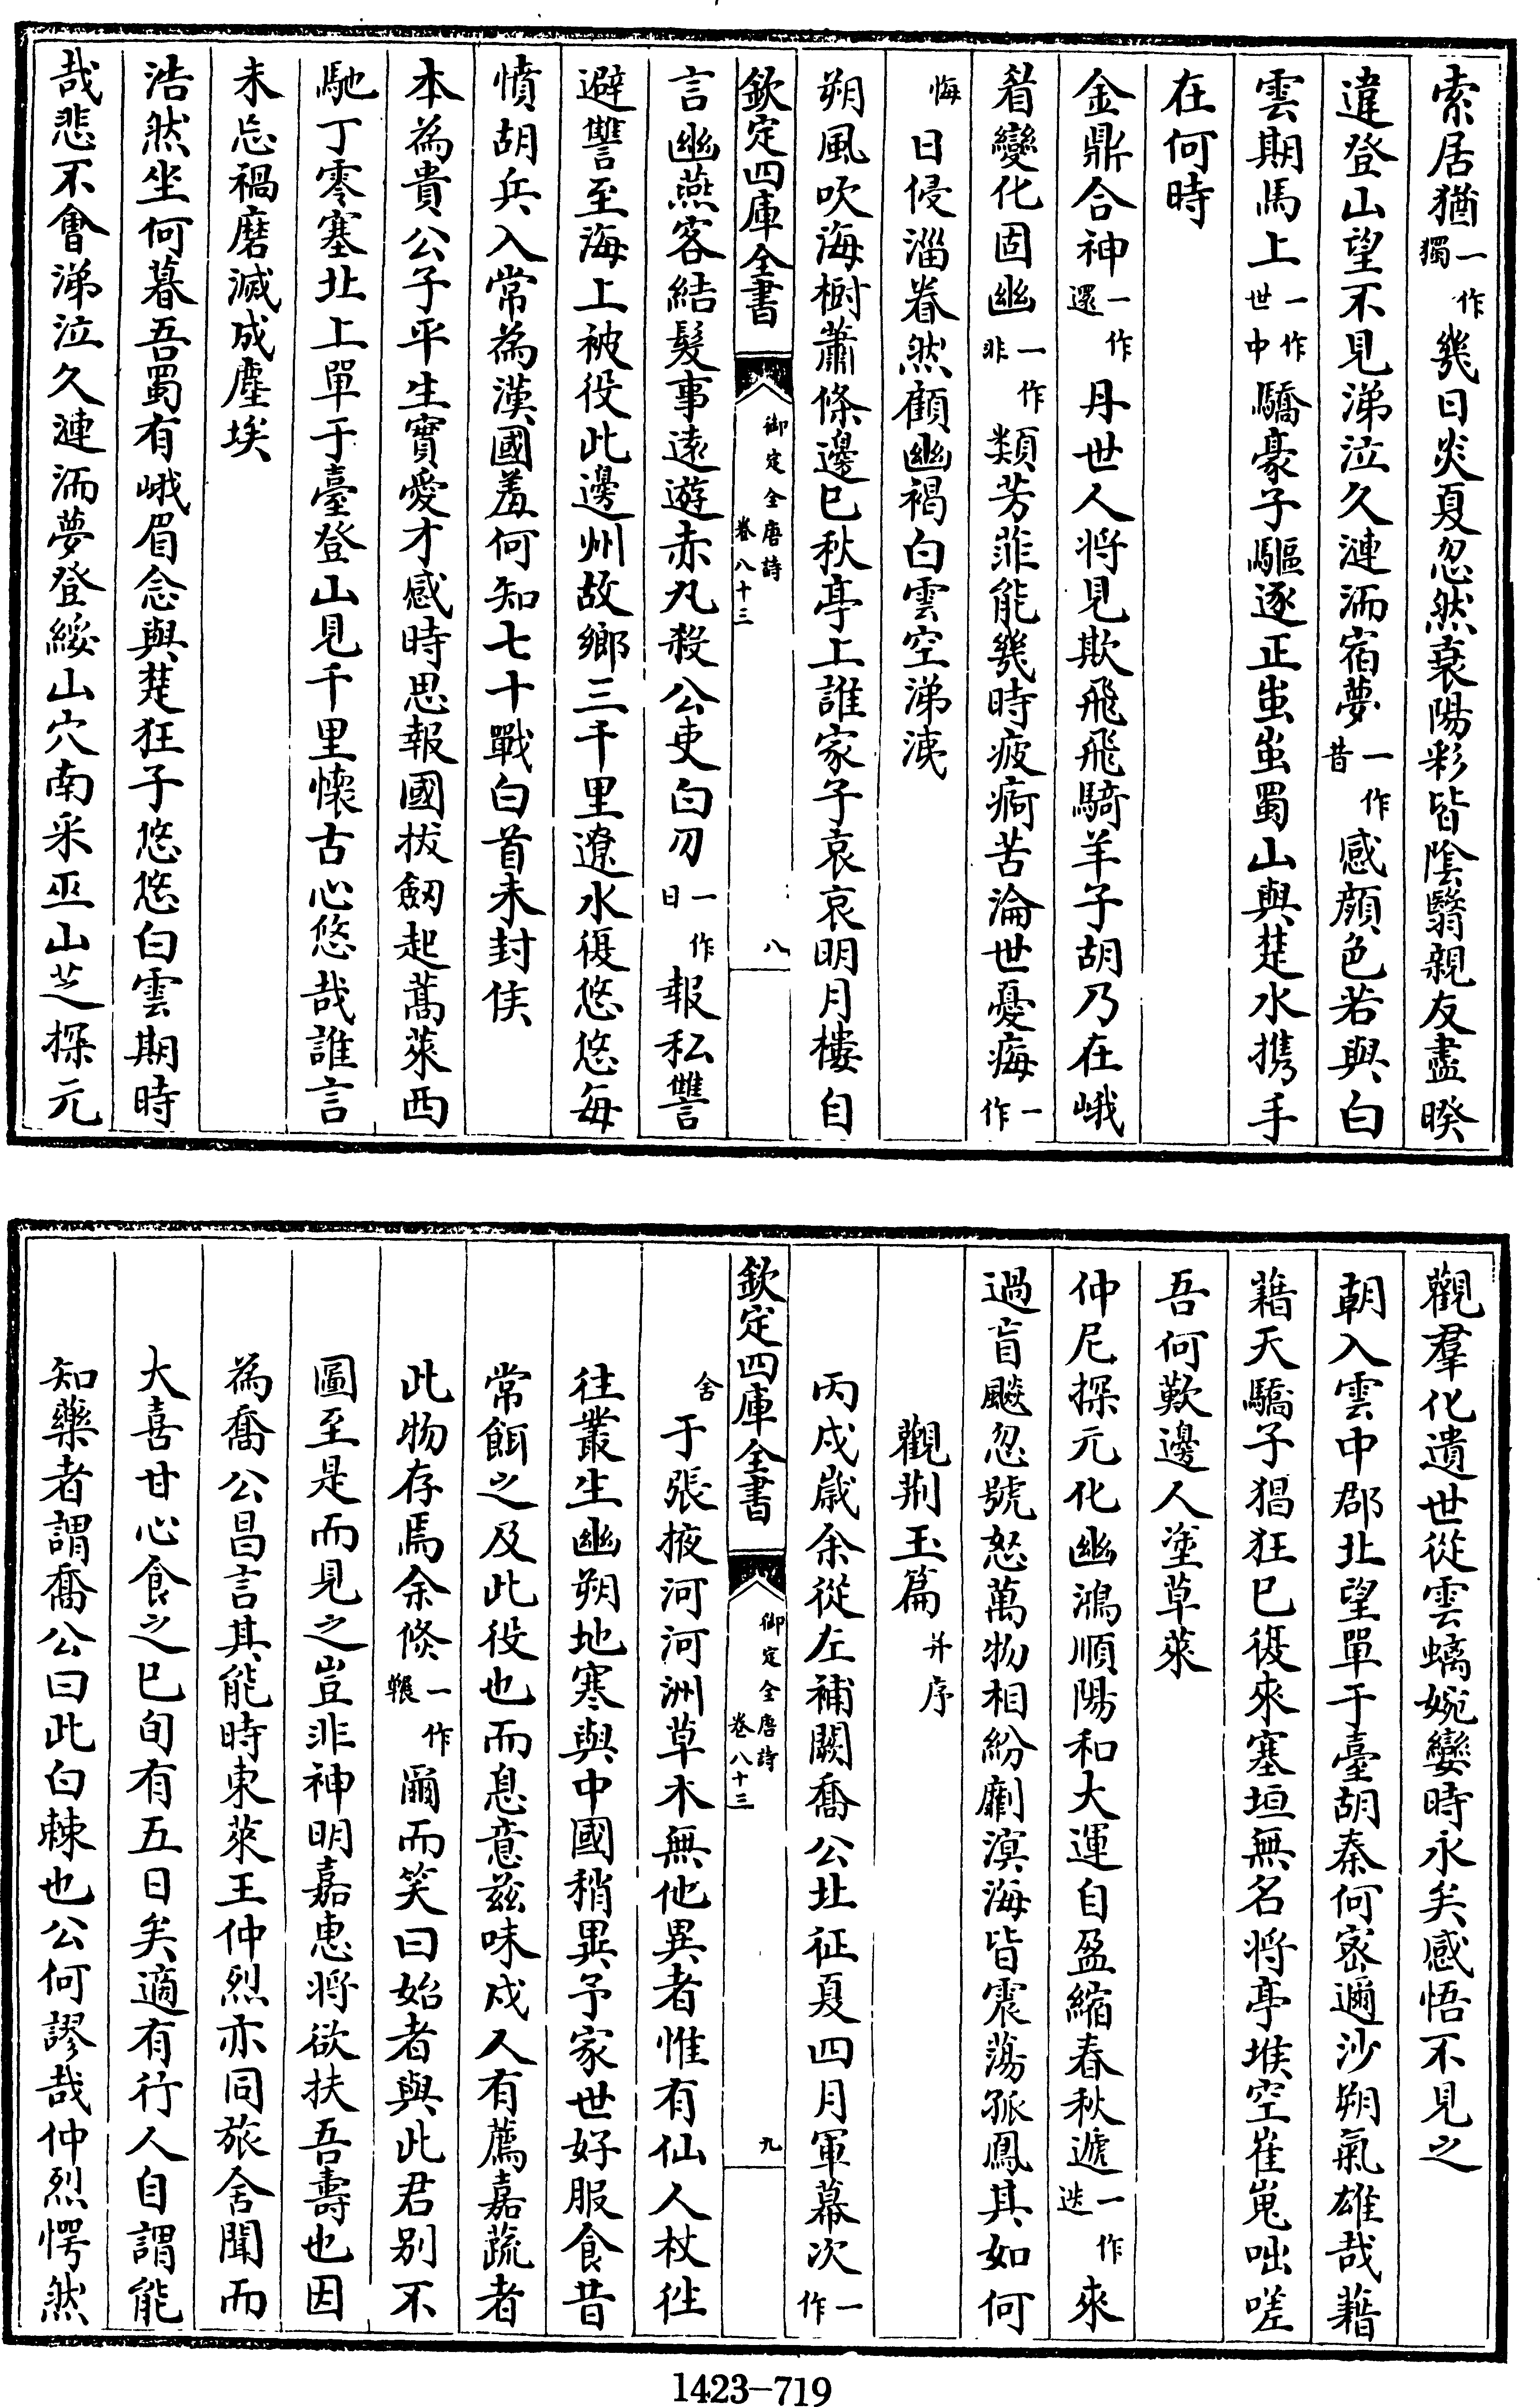 索居猶一作獨幾日炎夏忽然衰陽彩皆陰翳親友盡暌
違登山望不見涕泣久漣洏宿夢一作昔感顔色若與白
雲期馬上一作世中驕豪子驅逐正蚩蚩蜀山與楚水攜手
在何時
金鼎合神一作還丹世人將見欺飛飛騎羊子胡乃在峨
眉變化固幽一作非類芳菲能幾時疲痾苦淪世憂痗一作
悔日侵淄眷然顧幽褐白雲空涕洟
朔風吹海樹蕭條邊已秋亭上誰家子哀哀明月樓自
欽定四庫全書
御定全唐詩
卷八十三
八
言幽燕客結髮事遠遊赤丸殺公吏白刃一作日報私讐
避讐至海上被役此邊州故鄉三千里遼水復悠悠每
憤胡兵入常為漢國羞何知七十戰白首未封侯
本為貴公子平生實愛才感時思報國拔劒起蒿萊西
馳丁零塞北上單于臺登山見千里懷古心悠哉誰言
未忘禍磨滅成塵埃
浩然坐何暮吾蜀有峨眉念與楚狂子悠悠白雲期時
哉悲不會涕泣久漣洏夢登綏山穴南采巫山芝探元
觀羣化遺世從雲螭婉孌時永矣感悟不見之
朝入雲中郡北望單于臺胡秦何密邇沙朔氣雄哉藉
藉天驕子猖狂已復來塞垣無名將亭堠空崔嵬咄嗟
吾何歎邊人塗草萊
仲尼探元化幽鴻順陽和大運自盈縮春秋遞一作迭來
過盲飈忽號怒萬物相紛劘溟海皆震蕩孤鳳其如何
觀荆玉篇并序
丙戌歲余從左補闕喬公北征夏四月軍幕次一作
舍于張掖河河洲草木無他異者惟有仙人杖徃
欽定四庫全書
御定全唐詩
卷八十三
九
往叢生幽朔地寒與中國稍異予家世好服食昔
常餌之及此役也而息意兹味戍人有薦嘉蔬者
此物存焉余倏一作囅爾而笑曰始者與此君别不
圖至是而見之豈非神明嘉惠將欲扶吾壽也因
為喬公昌言其能時東萊王仲烈亦同旅舍聞而
大喜甘心食之已旬有五日矣適有行人自謂能
知藥者謂喬公曰此白棘也公何謬哉仲烈愕然
1423-719